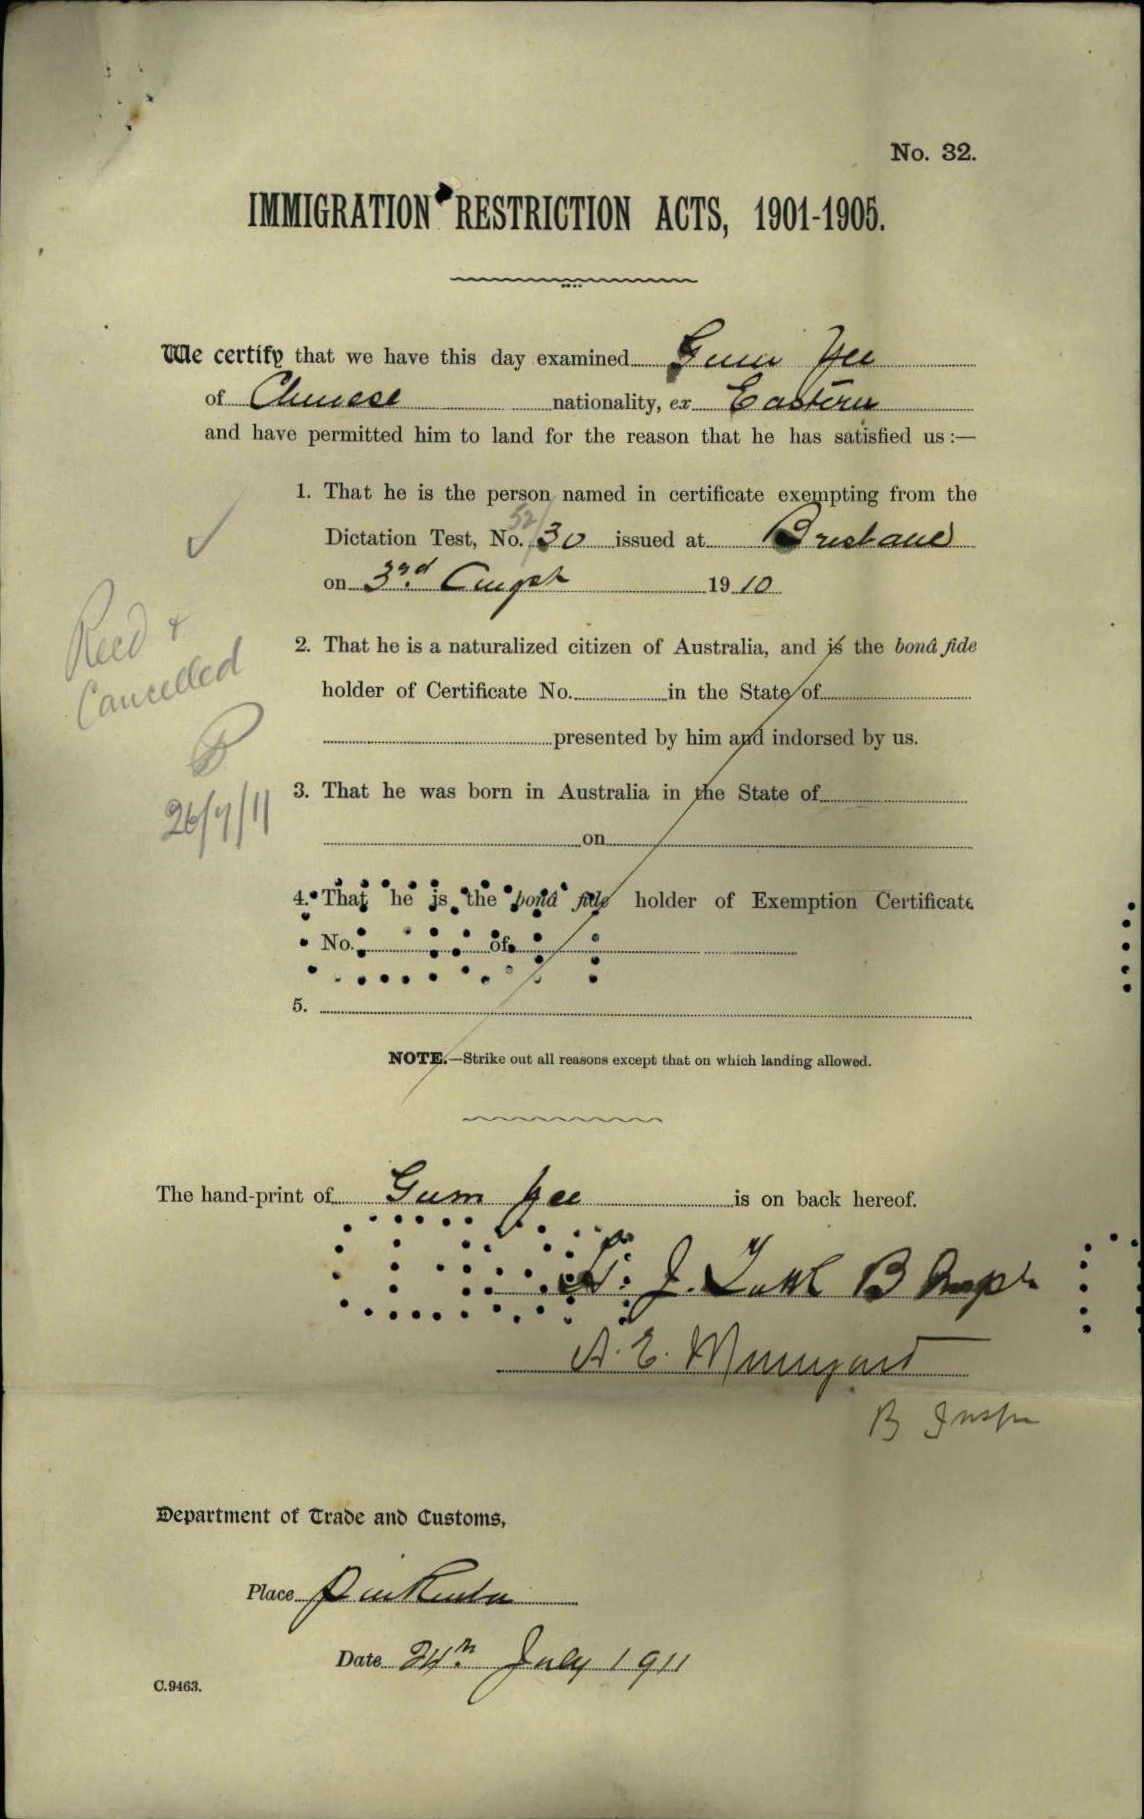 No. 32.
IMMIGRATION RESTRICTION ACTS, 1901-1905.
We certify that we have this day examined Gum Yee
of Chinese nationality, ex Eastern
and have permitted him to land for the reason that he has satisfied us :—
1. That he is the person named in certificate exempting from the
52/
Dictation Test, No. 30 issued at Brisbane
on 3rd August 1910
Recd &
Cancelled
26/7/11
2. That he is a naturalized citizen of Australia, and is the bonâ fide
holder of Certificate No. in the State of
presented by him and indorsed by us.
3. That he was born in Australia in the State of
on
4. That he is the bonâ fide holder of Exemption Certificate
No. of
5.
NOTE.—Strike out all reasons except that on which landing allowed.
The hand-print of Gum Yee is on back hereof.
J. B
A. E.
B Inspr
Department of Trade and Customs,
Place Pinkenba
Date 24th July 1911
C.9463.